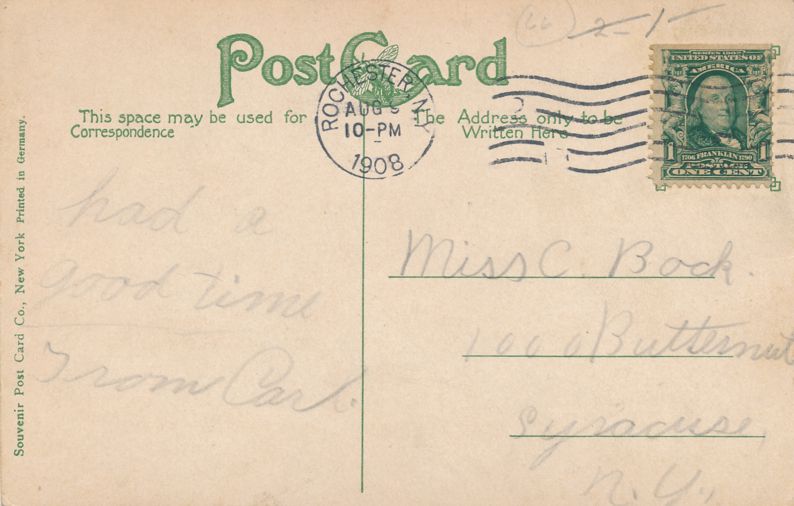 66 2-1-
Post Card
SERIES 1902
UNITED STATES OF
AMERICA
ROCHESTER, N.Y.
AUG 9
10-PM
1908
This space may be used for
Correspondence
The Address only to be
Written Here
1706 FRANKLIN 1790
1 POSTAGE 1
ONE CENT
had a
good time
From Carl.
Miss C. Bock.
1000 Butternut
Syracuse,
N. Y.,
Souvenir Post Card Co., New York Printed in Germany.